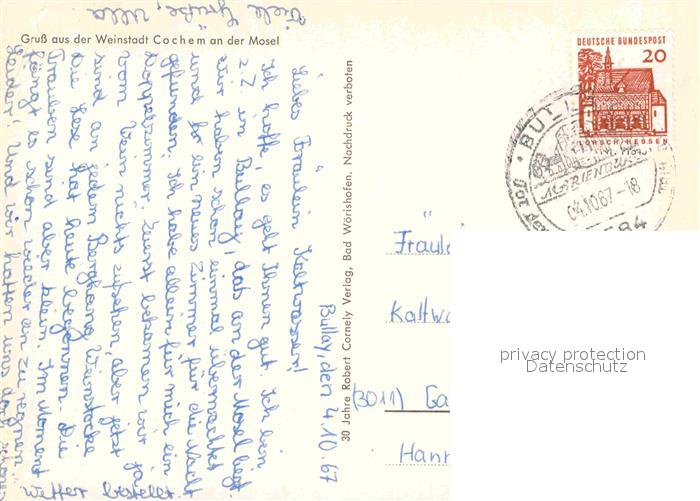 Gruß aus der Weinstadt Cochem an der Mosel
Bullay, den 4.10.67
Liebes Fräulein Kaltwasser!
Ich hoffe, es geht Ihnen gut. Ich bin
z.Z. in Bullay, das an der Mosel liegt.
Wir haben schon einmal übernachtet
und für ein neues Zimmer für die Nacht
gefunden. Ich habe allein für mich ein
Doppelzimmer. Zuerst bekamen wir ja
vom Wein nichts zusehen, aber jetzt
sind an jedem Berghang Weinstöcke.
Die Lese hat heute begonnen. Die
Trauben sind aber klein. Im Moment
fängt es schon wieder an zu regnen
Leider! Und wir hatten uns doch schönes
Wetter bestellt.
Viele Grüße, Ulla
30 Jahre Robert Cornely Verlag, Bad Wörishofen. Nachdruck verboten
DEUTSCHE BUNDESPOST
20
LORSCH/HESSEN
BULL
FERIEN
04.10.67-18
584
Fräule
Kaltwa
(3011) Ga
Hann
privacy protection
Datenschutz